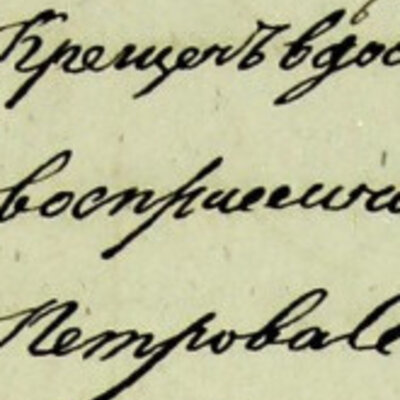 Крещенъ в дос
восприемни
Петрова С